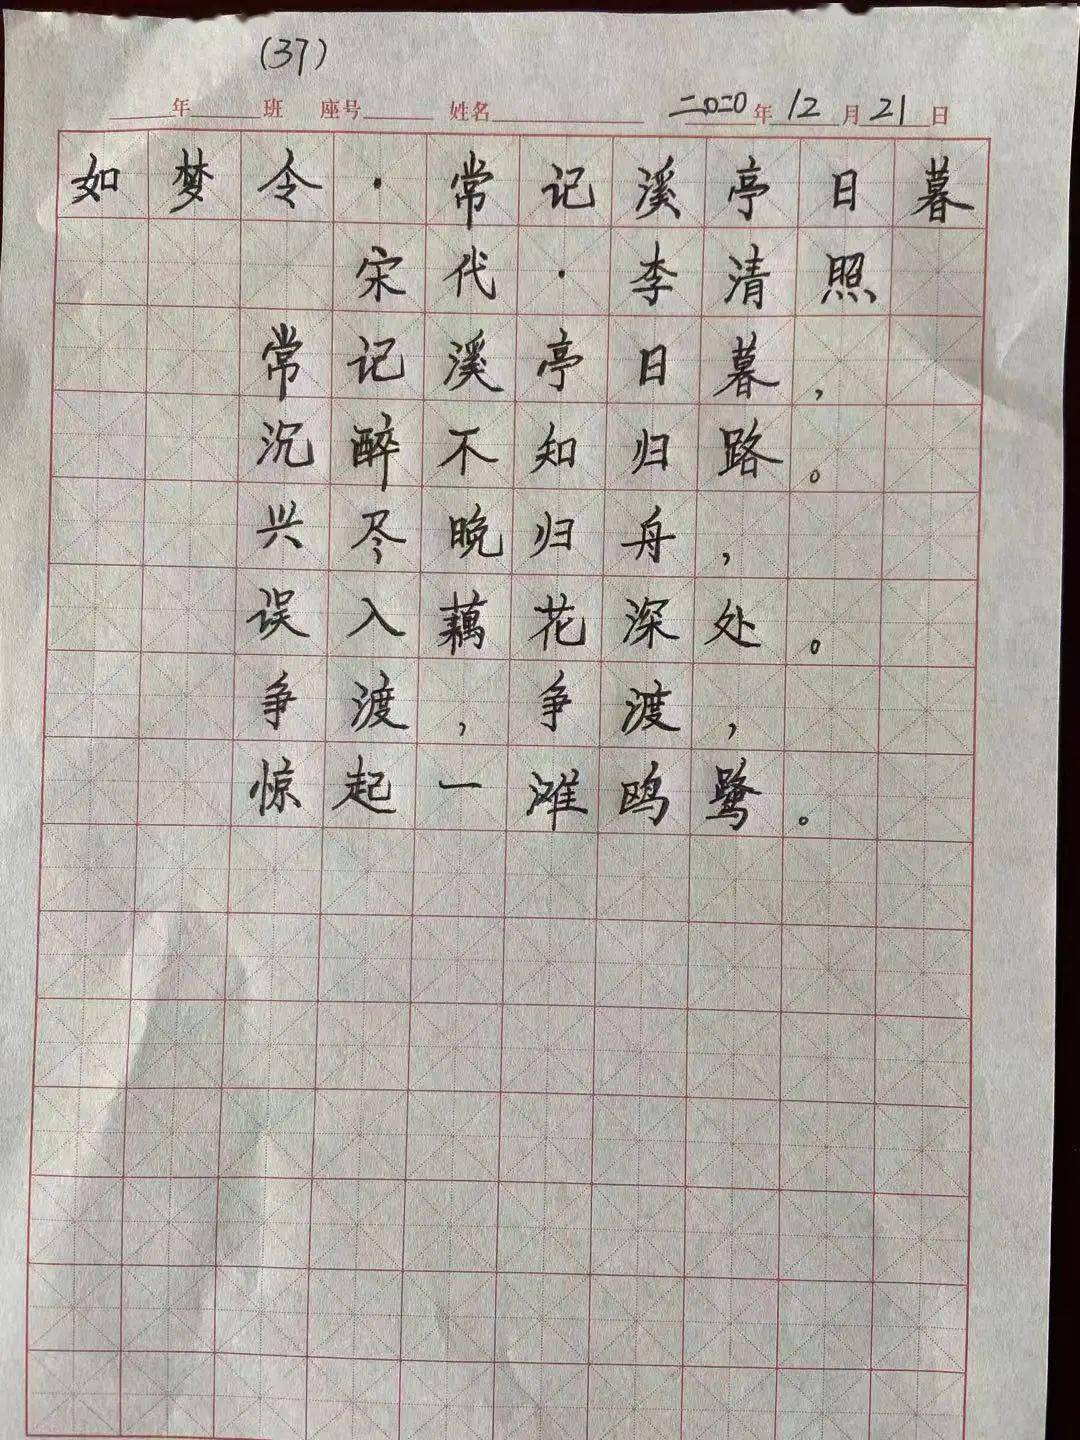 (37)
年 班 座号 姓名 二〇二〇年12月21日
如梦令·常记溪亭日暮
宋代·李清照
常记溪亭日暮，
沉醉不知归路。
兴尽晚归舟，
误入藕花深处。
争渡，争渡，
惊起一滩鸥鹭。